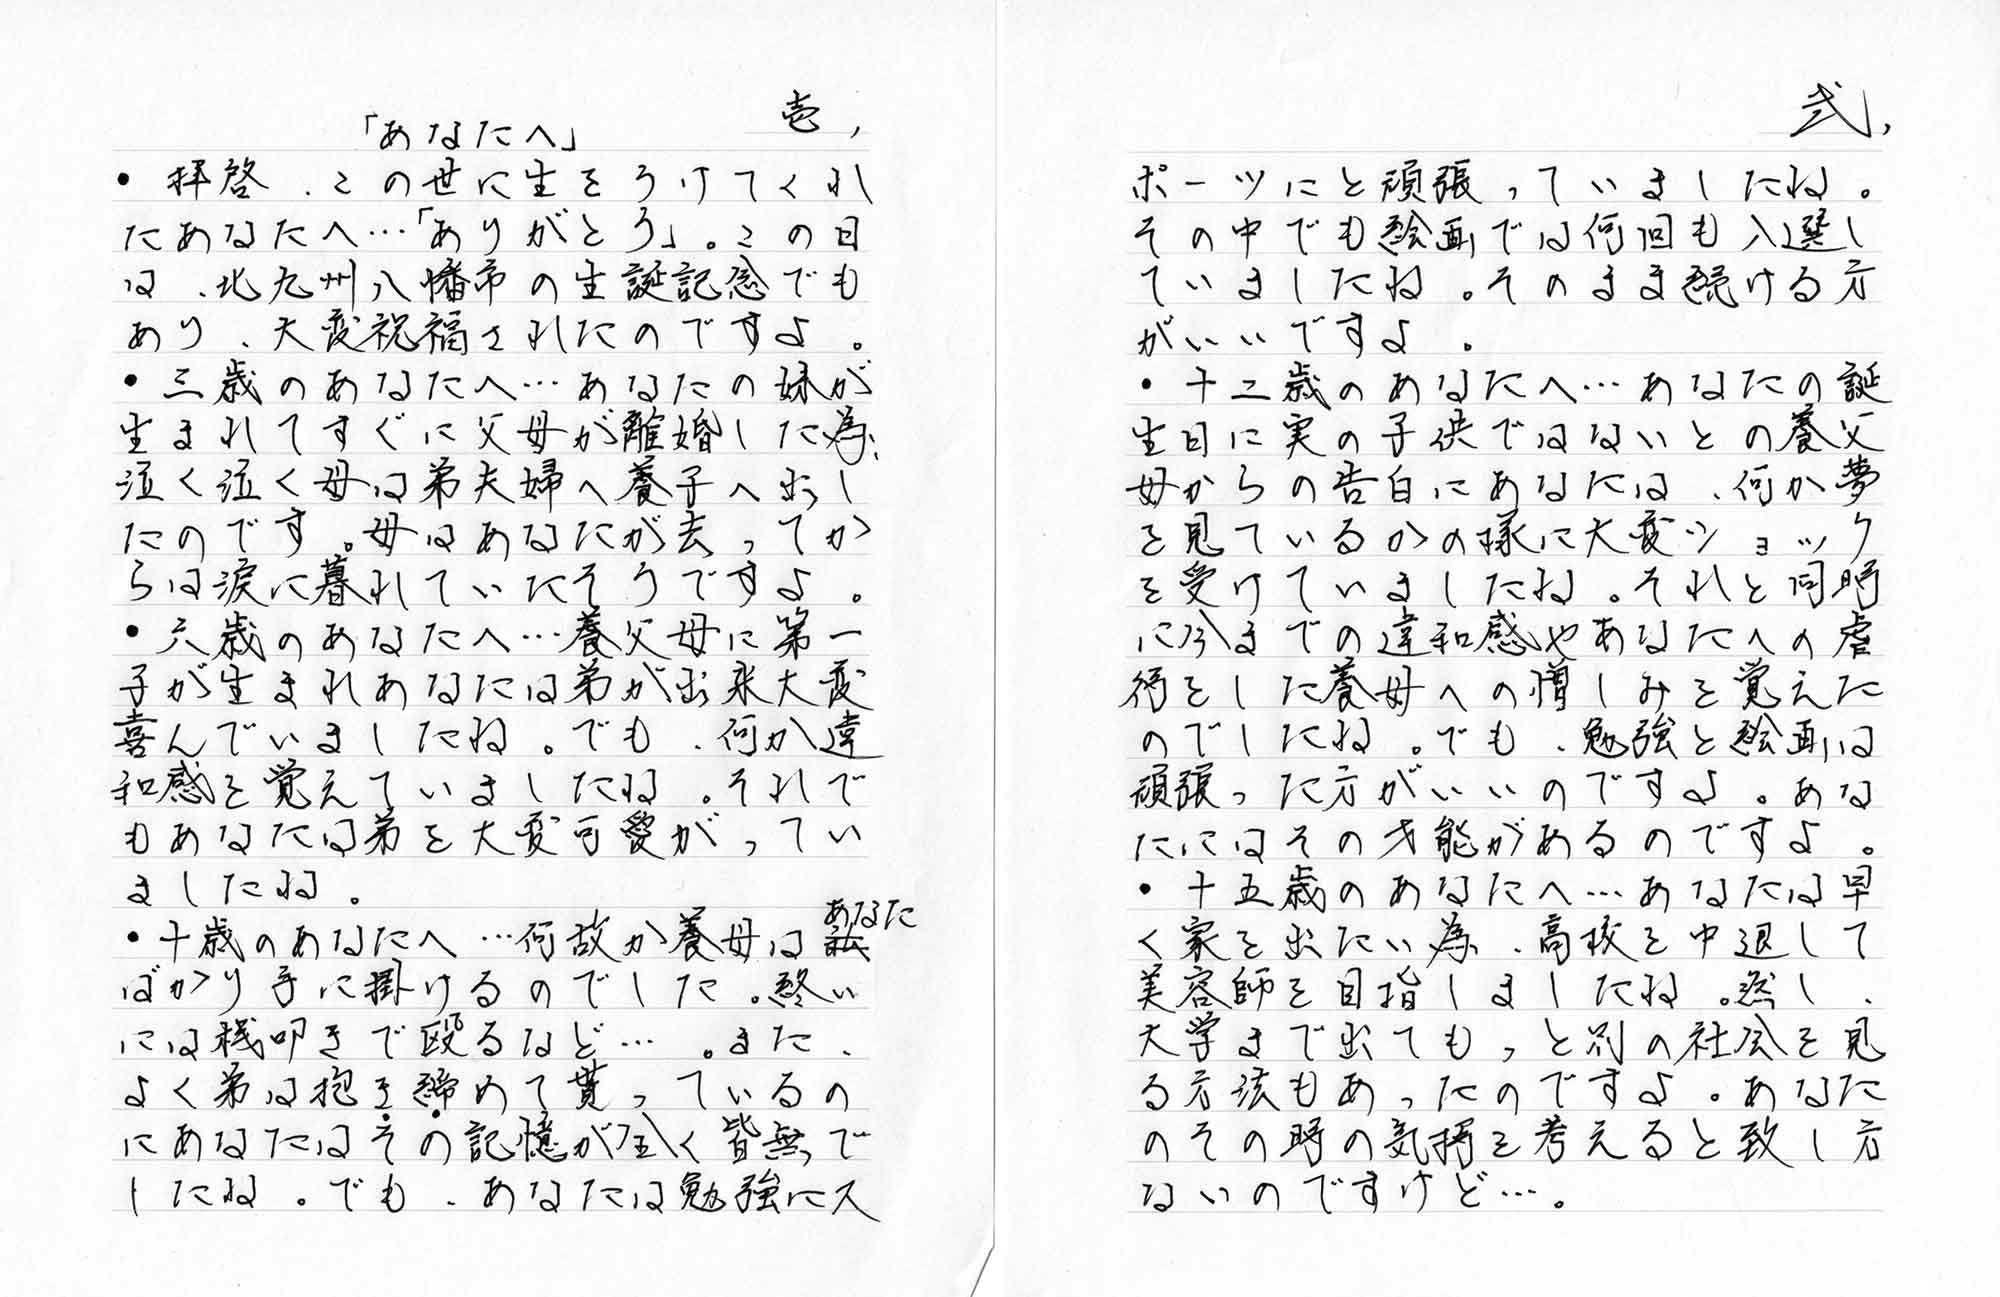 壱,
「あなたへ」
・拝啓、この世に生をうけてくれ
たあなたへ…「ありがとう」。この日
は、北九州八幡市の生誕記念でも
あり、大変祝福されたのですよ。
・三歳のあなたへ…あなたの妹が
生まれてすぐに父母が離婚した為、
泣く泣く母は弟夫婦へ養子へ出し
たのです。母はあなたが去ってか
らは涙に暮れていたそうですよ。
・六歳のあなたへ…養父母に第一
子が生まれあなたは弟が出来大変
喜んでいましたね。でも、何か違
和感を覚えていましたね。それで
もあなたは弟を大変可愛がってい
ましたね。
・十歳のあなたへ…何故か養母はあなた
ばかり手に掛けるのでした。終い
には桟叩きで殴るなど…。また、
よく弟は抱き締めて貰っているの
にあなたはその記憶が全く皆無で
したね。でも、あなたは勉強にス
弐,
ポーツにと頑張っていましたね。
その中でも絵画では何回も入選し
ていましたね。そのまま続ける方
がいいですよ。
・十二歳のあなたへ…あなたの誕
生日に実の子供ではないとの養父
母からの告白にあなたは、何か夢
を見ているかの様に大変ショック
を受けていましたね。それと同時
に今までの違和感やあなたへの虐
待をした養母への憎しみを覚えた
のでしたね。でも、勉強と絵画は
頑張った方がいいのですよ。あな
たにはその才能があるのですよ。
・十五歳のあなたへ…あなたは早
く家を出たい為、高校を中退して
美容師を目指しましたね。然し、
大学まで出てもっと別の社会を見
る方法もあったのですよ。あなた
のその時の気持を考えると致し方
ないのですけど…。